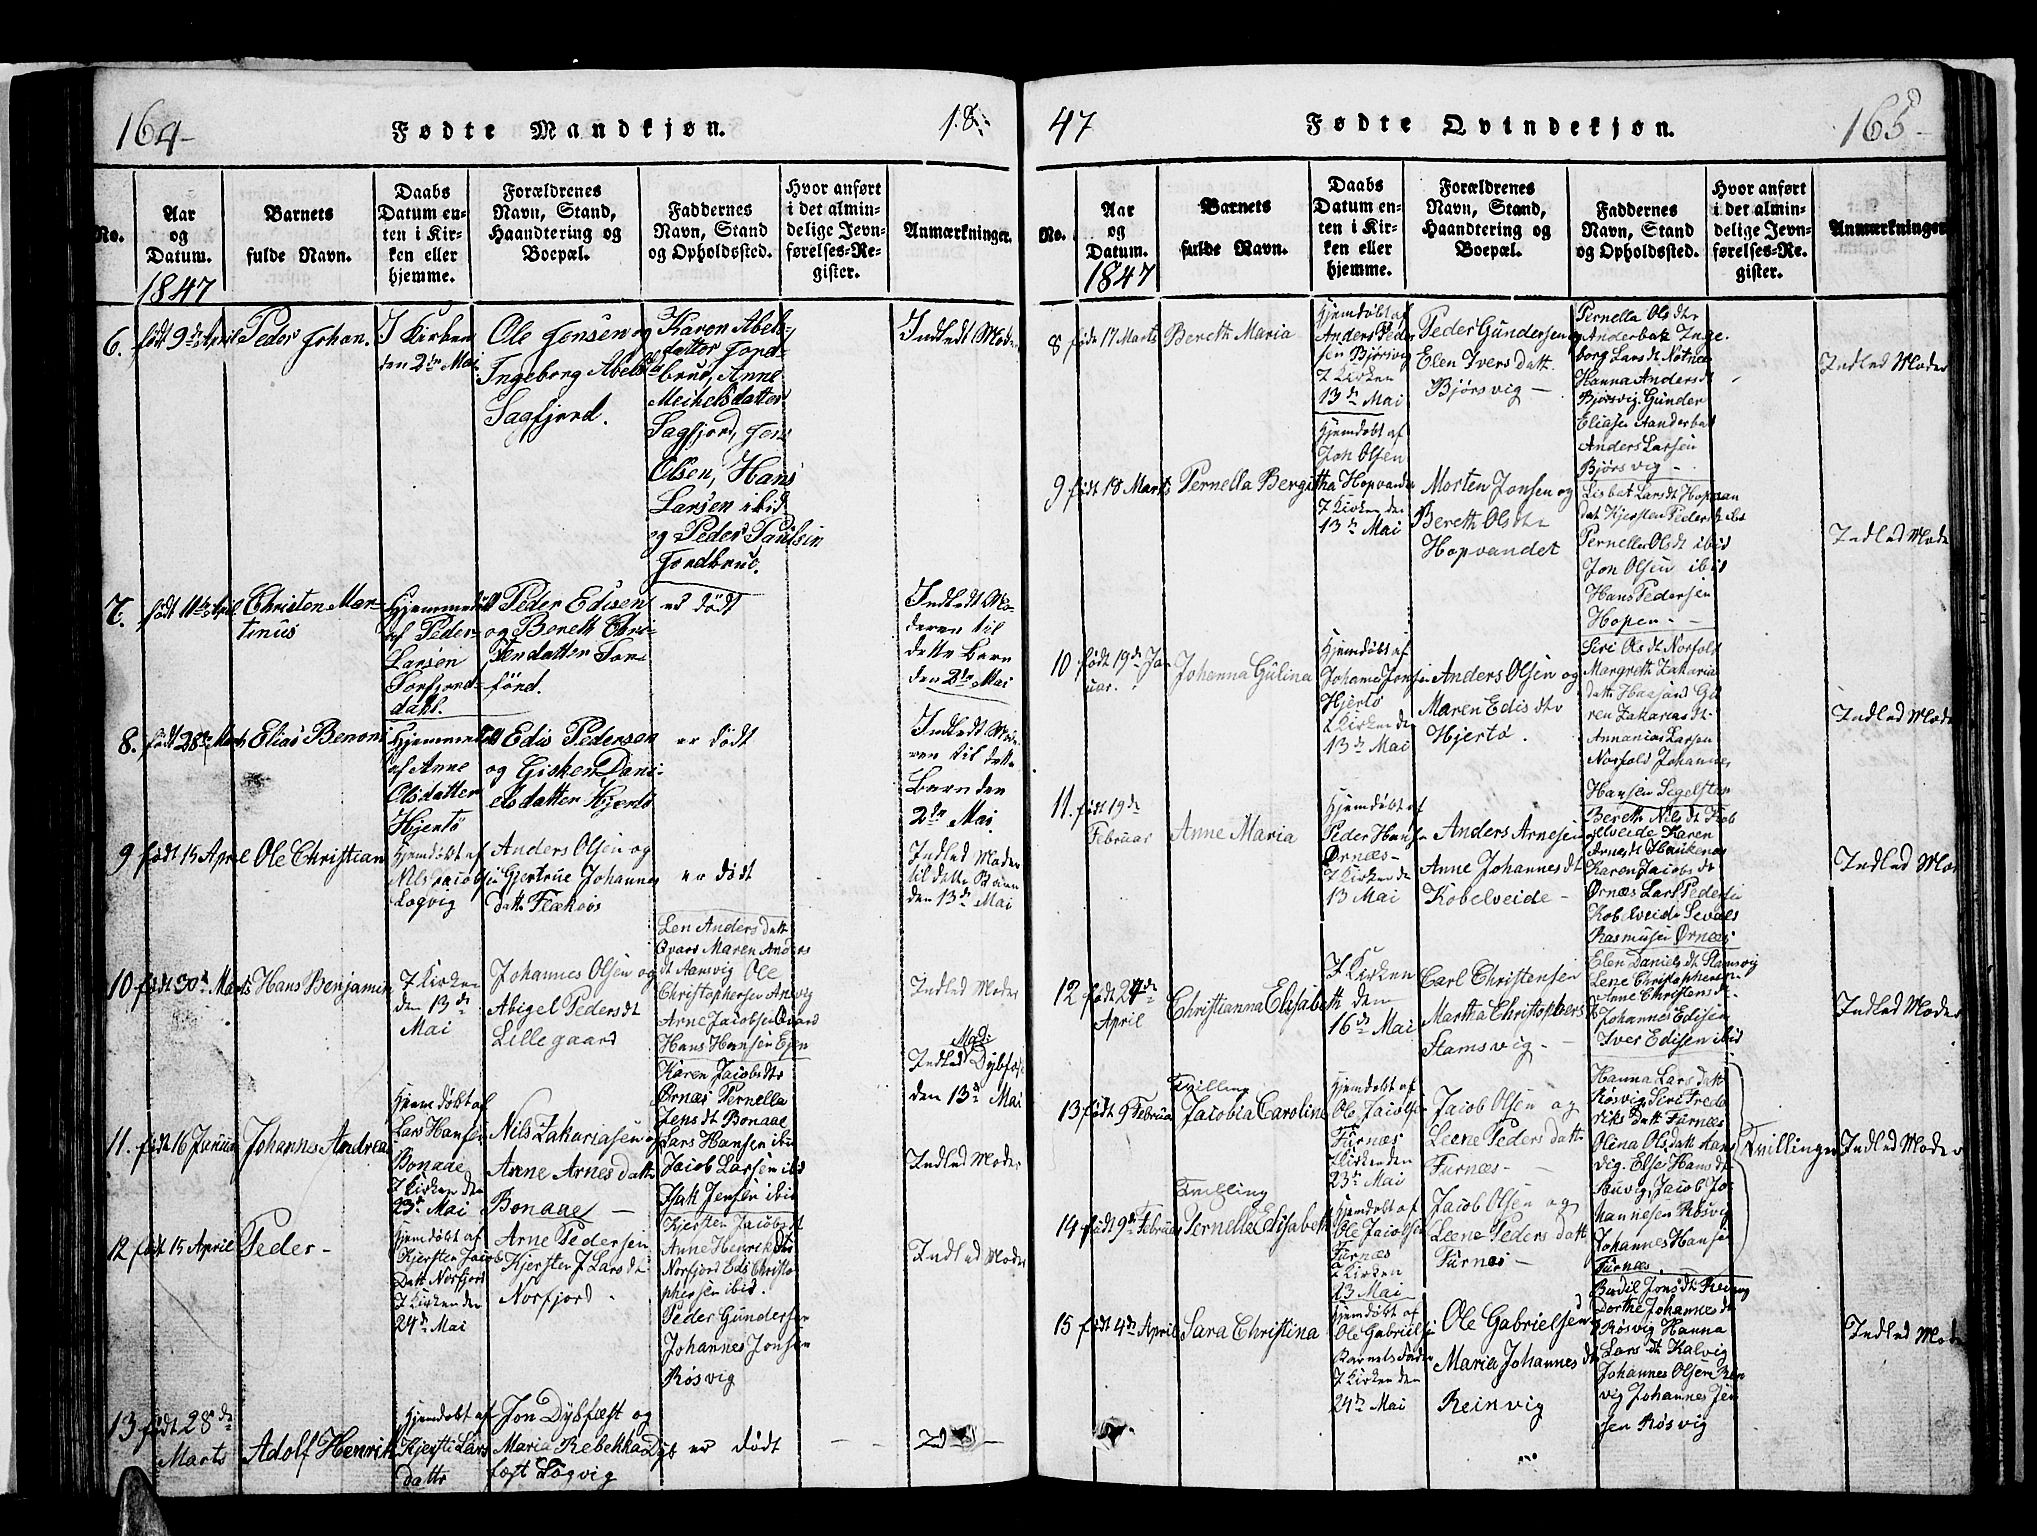 164
Fødte Mandkjøn.
18
No.
Aar
og
Datum.
1847
Barnets
fulde Navn.
Daabs
Datum en-
ten i Kir-
ken eller
hjemme.
Forældrenes
Navn, Stand,
Haandtering og
Boepæl.
Faddernes
Navn, Stand
og Opholdssted.
Hvor anført
i det almin-
delige Jevn-
førelses-Re-
gister.
Anmærkninger.
6.
født 9de April
Peder Johan.
I Kirken
den 2den Mai
Ole Jensen og
Ingeborg Abels
Sagfjord.
Karen Abel-
datter Jord-
brud, Anne
Meihelsdatter
Sagfjord, Jens
Olsen, Hans
Larsen ibid
og Peder Paulsen
Jordbrud.
Indledt Moder
7.
født 11te April
Christen Mar-
tinus
Hjemmedøbt
af Peder
Larsen
Sørfjord-
dahl.
Peder Edisen
og Bereth Chri-
stendatter Sør-
fjord.
er død
Indledt Mo-
deren til
dette Barn
den 2den Mai
8.
født 28de Marts
Elias Benoni
Hjemmedøbt
af Anne
Olsdatter
Hjertø
Edis Pedersen
og Gisken Dani-
elsdatter Hjertø
er død
Indledt Mode-
ren til dette
Barn den
2den Mai.
9
født 15 April
Ole Christian
Hjemdøbt af
Nels Jacobsen
Løgvig
Anders Olsen og
Gjertrue Johannes
datt. Flækøes
er død
Indled Moder
til dette Barn
den 13de Mai
10
født 30te Marts
Hans Benjamin
I Kirken
den 13de
Mai
Johannes Olsen og
Abigel Pedersdt
Lillegaard
Len Andersdatt
Qvars Maren Anders
dt Aansvig Ole
Christophersen
Arne Jacobsen
Hans Hansen Ejen
Indled Moder
Indled
den 13de Mai
11.
født 16 Januar
Johannes Andrea
Hjemdøbt af
Lars Hansen
Bonaae
I Kirken den
23de Mai
Nils Zakariasen og
Anne Arnesdatt
Bonaae
Karen Jacobsdtr
Ørnæs Pernella
Jensdt Bonaae
Lars Hansen ibid
Jacob Larsen ibid
Isak Jensen ibid
Indled Moder
12
født 15 April
Peder
Hjemdøbt af
Kjersten Jacob
Datt Norfjord
I Kirken den
24de Mai
Arne Pedersen
Kjersten J Larsdt
Norfjord
Kjersten Jacobsdt
Anne Henrikdtr
Norfjord Edis Christo
phersen ibid.
Peder Gundersen
Johannes Jonsen
Røsvig
Indled Moder
13
født 28de
Marts
Adolf Henrik
Hjemdøbt af
Kjersti Lars
datter
Jon Dybfæst og
Maria Rebekka Dyb
fæst Løgvig
er død
47
Fødte Qvindekjøn.
165
No.
Aar
og
Datum.
1847
Barnets
fulde Navn.
Daabs
Datum en-
ten i Kir-
ken eller
hjemme.
Forældrenes
Navn, Stand,
Haandtering og
Boepæl.
Faddernes
Navn, Stand
og Opholdssted.
Hvor anført
i det almin-
delige Jevn-
førelses-Re-
gister.
Anmærkninger
8
født 17 Marts
Bereth Maria
Hjemdøbt af
Anders Peder
sen Bjørsvig
I Kirken
13de Mai
Peder Gundersen og
Elen Iversdatt
Bjørsvig
Pernella Olsdtr
Anderbak Inge-
borg Larsdt Nøtnes
Hanna Andersdt
Bjørsvig Gunder
Eliasen Aanderbak
Anders Larsen
Bjørsvig
Indled Moder
9
født 18 Marts
Pernella Bergitha
Hjemdøbt af
Jon Olsen
Hopvandet
I Kirken den
13de Mai
Morten Jonsen og
Bereth Olsdtr
Hopvandet
Lisbat Larsdt Hopvan
det Kjersten Pedersdt ibid
Pernella Olsdt ibid
Jon Olsen ibid
Hans Pedersen
Hopen
Indled Moder
10
født 19de Ja-
nuar.
Johanna Gulina
Hjemdøbt af
Johanna Jonsen
Hjertø
I Kirken den
13de Mai
Anders Olsen og
Maren Edisdtr
Hjertø.
Siri Olsdt Norfold
Margreth Zakaria
datt Husand Gu
ren Zakariasdt
Annanias Larsen
Norfold Johannes
Hansen Segelsten
Indled Moder
11.
født 19de
Februar
Anne Maria
Hjemdøbt af
Peder Hansen
Ørnæs
I Kirken den
13 Mai
Anders Arnesen
Anne Johannesdt
Kobelveide
Bereth Nilsdt Kob
elveide Karen
Arnesdt Haukenes
Karen Jacobsdt
Ørnæs Lars Pedersen
Kobelveide Sevals
Rasmusen Ørnæs
Indled Mod
12
født 24de
April
Christianna Elisabeth
I Kirken
den
16de Mai
Carl Christensen
Martha Christophersdt
Stamsvig
Elen Danielsdt Stamsvig
Lene Christophersen
Anne Christensdt
Johannes Edisen
Iver Edisen ibid
Indled Moder
13
født 9 Februar
Tvilling
Jacobia Caroline
Hjemdøbt af
Ole Jacobsen
Furnæs
I Kirken den
23de Mai
Jacob Olsen og
Leene Pedersdatt
Furnæs
Hanna Larsdatt
Røsvig Siri Fredr
riks datt Furnæs
Olina Olsdatt Aans
vig. Else Hansdt
Buvig, Jacob Jo-
hannesen Røsvig
Johannes Hansen
Furnæs.
Tvillinger
Indled Moder
14
født 9de Februar
Tvilling
Pernelle Elisabeth
Hjemdøbt af
Ole Jacobsen
Furnæs
I Kirken
23 Mai
Jacob Olsen og
Leene Pedersdatt
Furnæs
15
født 4de April
Sara Christina
Hjemdøbt af
Ole Gabrielsen
Barnets Fader
I Kirken den
24de Mai
Ole Gabrielsen
Maria Johannesdt
Reinvig
Bodil Jonsdt Reinvig
Dorthe Johannesdt
Røsvig Hanna
Larsdt Kalvig
Johannes Olsen Rein
vig Johannes Jen
sen Røsvig
Indled Mode